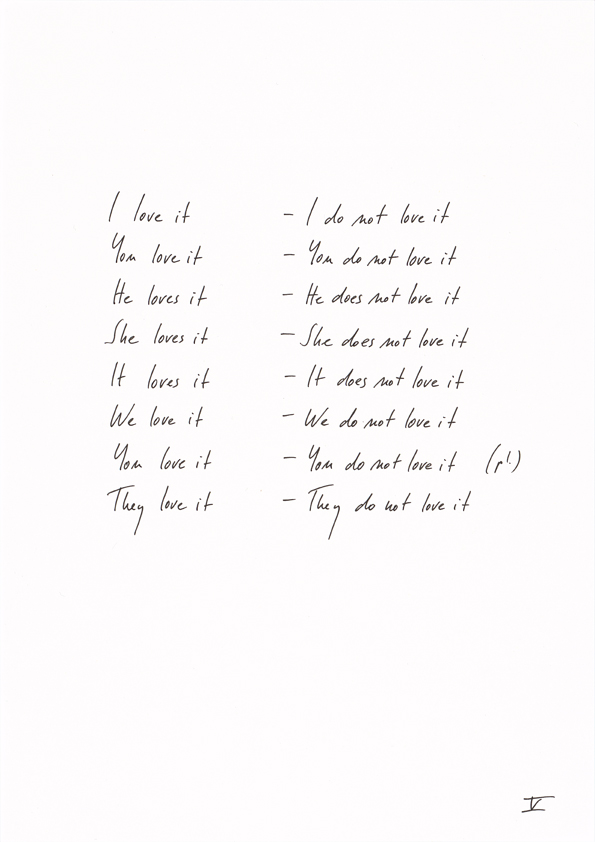 I love it – I do not love it
You love it – You do not love it
He loves it – He does not love it
She loves it – She does not love it
It loves it – It does not love it
We love it – We do not love it
You love it – You do not love it (pl.)
They love it – They do not love it
V